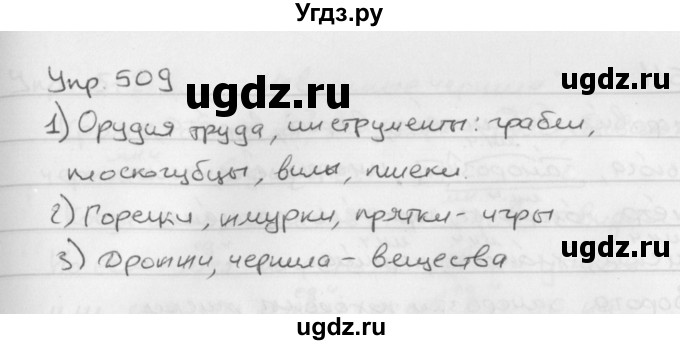 Угдз.ру
Упр 509
ugdz.ru ugdz.ru
1) Орудия труда, инструменты: грабли,
плоскогубцы, вилы, пилы.
2) Горелки, жмурки, прятки - игры
ugdz.ru ugdz.ru
3) Дрожжи, чернила - вещества
ugdz.ru